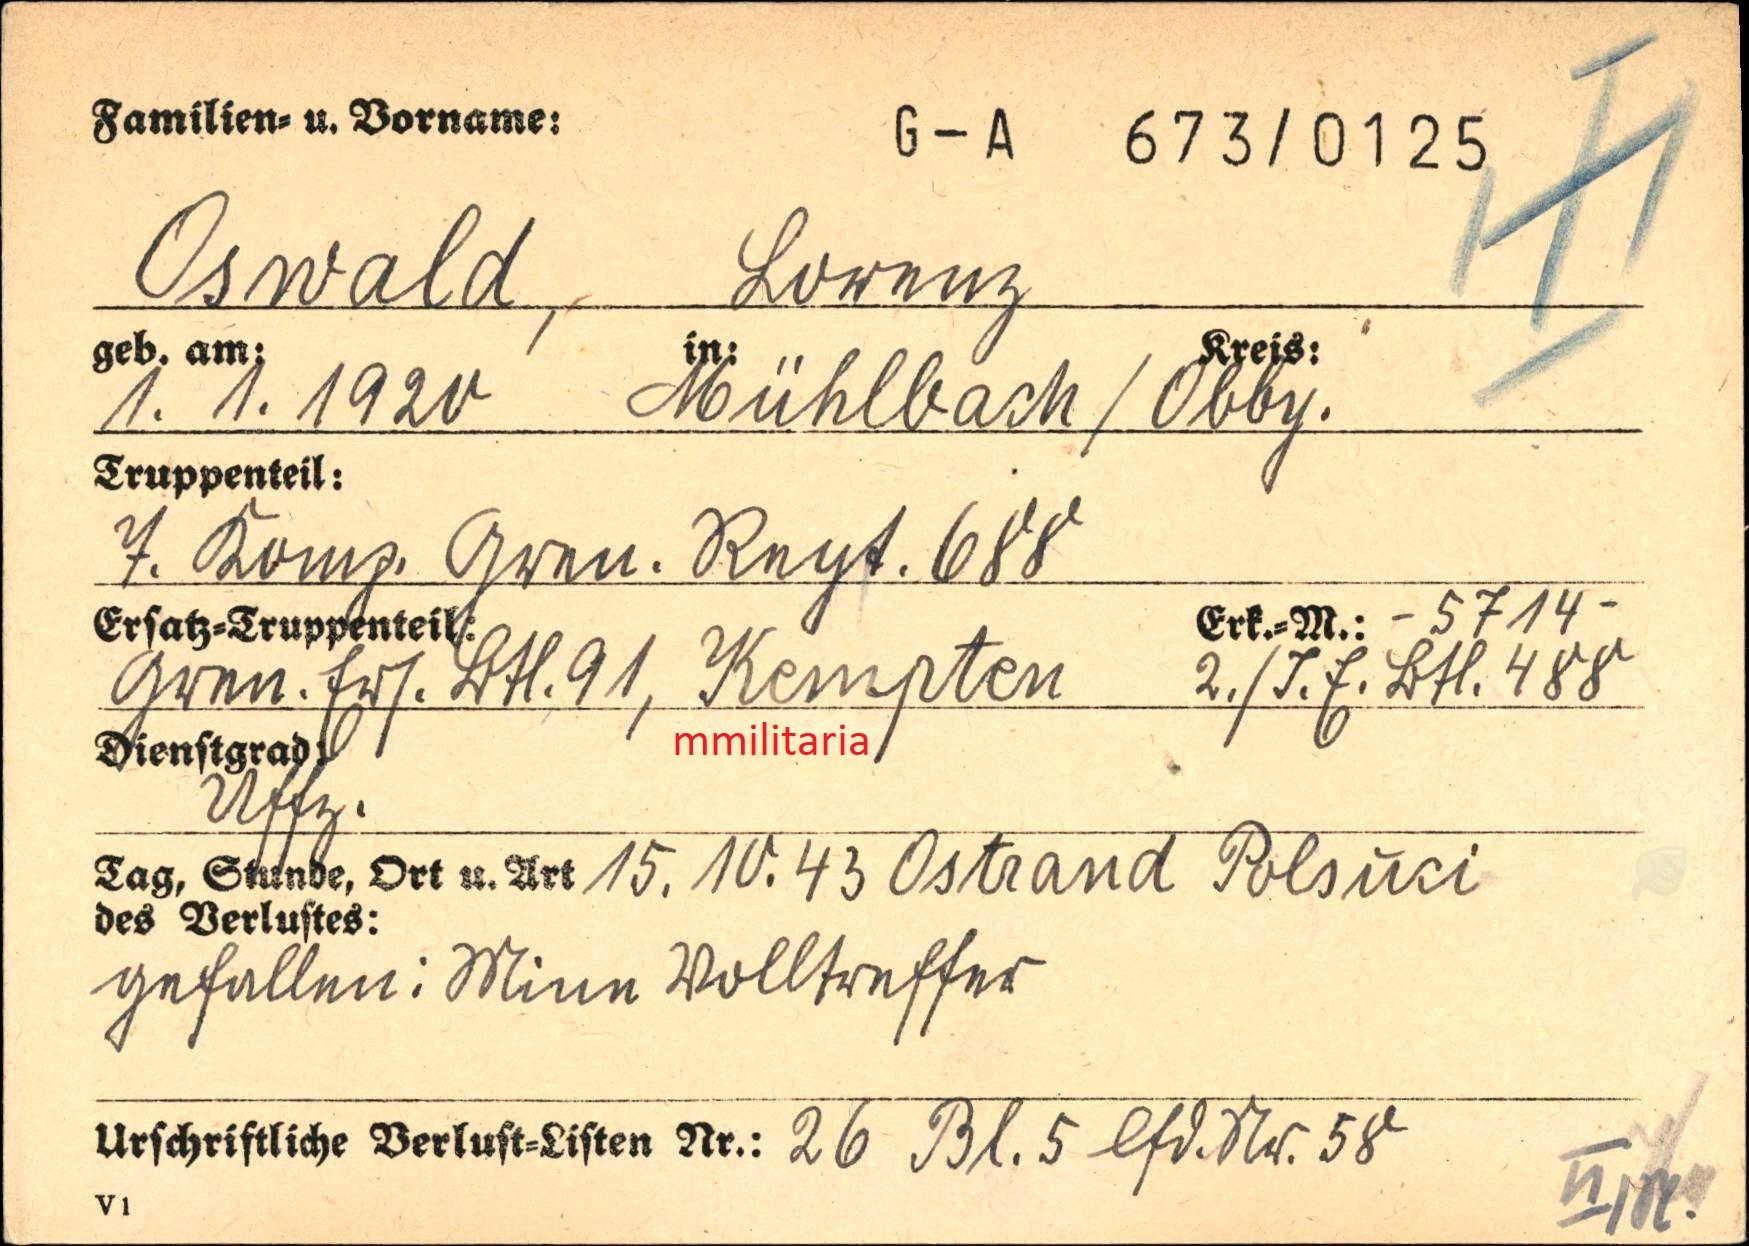 Familien- u. Vorname: G-A 673/0125
Oswald, Lorenz
geb. am: in: Kreis:
1. 1. 1920 Mühlbach / Obby.
Truppenteil:
7. Komp. Gren. Regt. 688
Ersatz-Truppenteil: Erk.-M.: -5714-
Gren. Ers. Btl. 91, Kempten 2./I.E. Btl. 488
mmilitaria
Dienstgrad:
Uffz.
Tag, Stunde, Ort u. Art 15. 10. 43 Ostrand Polsuci
des Verlustes:
gefallen: Mine Volltreffer
Urschriftliche Verlust-Listen Nr.: 26 Bl. 5 lfd. Nr. 58
V1